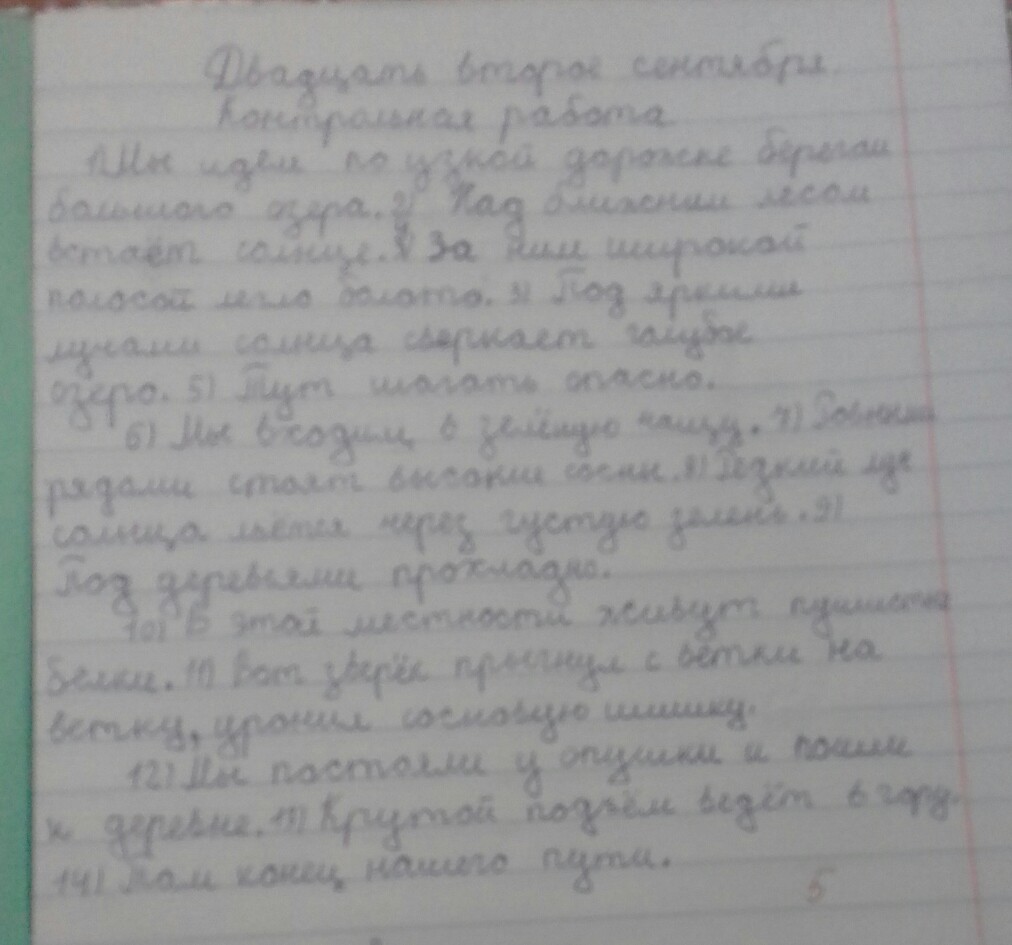 Двадцать второе сентября.
Контрольная работа
1) Мы идём по узкой дорожке берегом
большого озера. 2) Над ближним лесом
встаёт солнце. 3) За ним широкой
полосой легло болото. 4) Под яркими
лучами солнца сверкает голубое
озеро. 5) Тут шагать опасно.
6) Мы входим в зелёную чащу. 7) Ровными
рядами стоят высокие сосны. 8) Редкий луч
солнца льётся через густую зелень. 9)
Под деревьями прохладно.
10) В этой местности живут пушистые
белки. 11) Вот зверёк прыгнул с ветки на
ветку, уронил сосновую шишку.
12) Мы постояли у опушки и пошли
к деревне. 13) Крутой подъём ведёт в гору.
14) Там конец нашего пути.
5